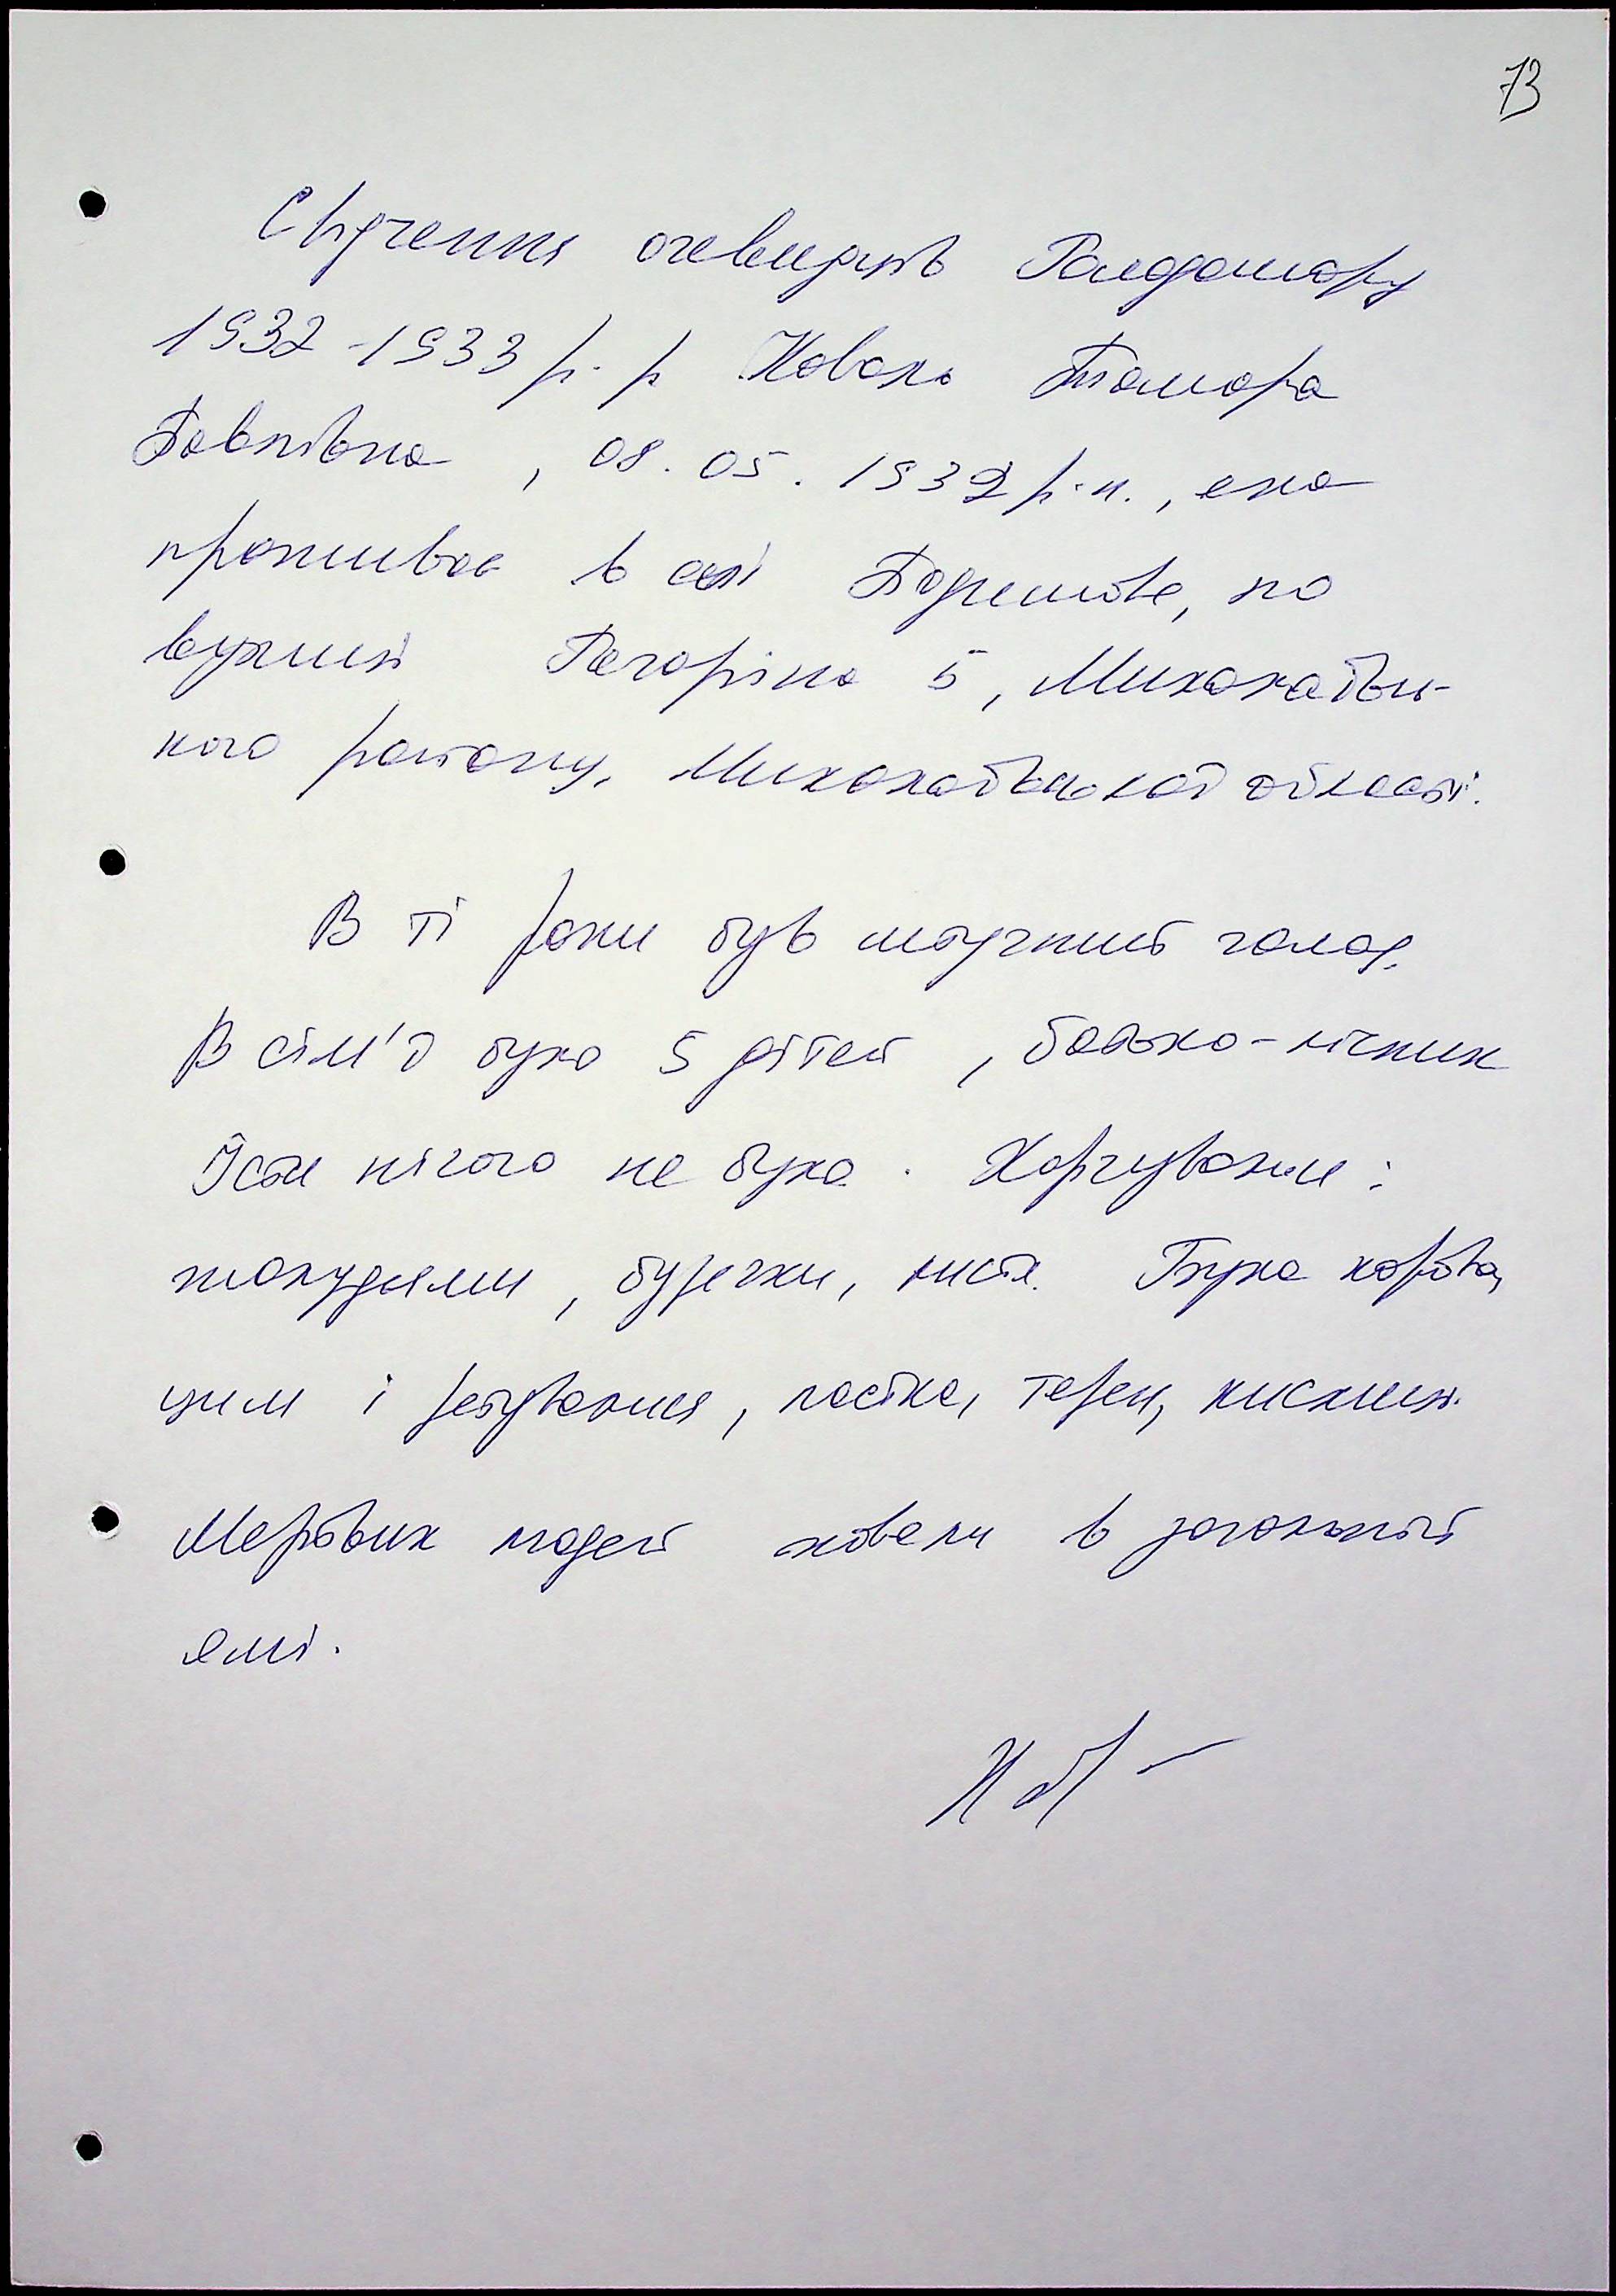 73
Свідчення очевидців Голодомору
1932-1933 р.р Коваль Тамара
Павлівна, 08.05.1932 р.н., яка
проживає в селі по
вулиці Гагаріна 5, Миколаївсь-
кого району, Миколаївської області.
В ті роки був штучний голод.
В сім'ї було 5 дітей, батько-лісник
Їсти нічого не було. Харчувались:
жолудями, бузечки, листя. Була корова,
цим і рятувались, паслін, терен, кислиці.
Мертвих людей ховали в загальній
ямі.